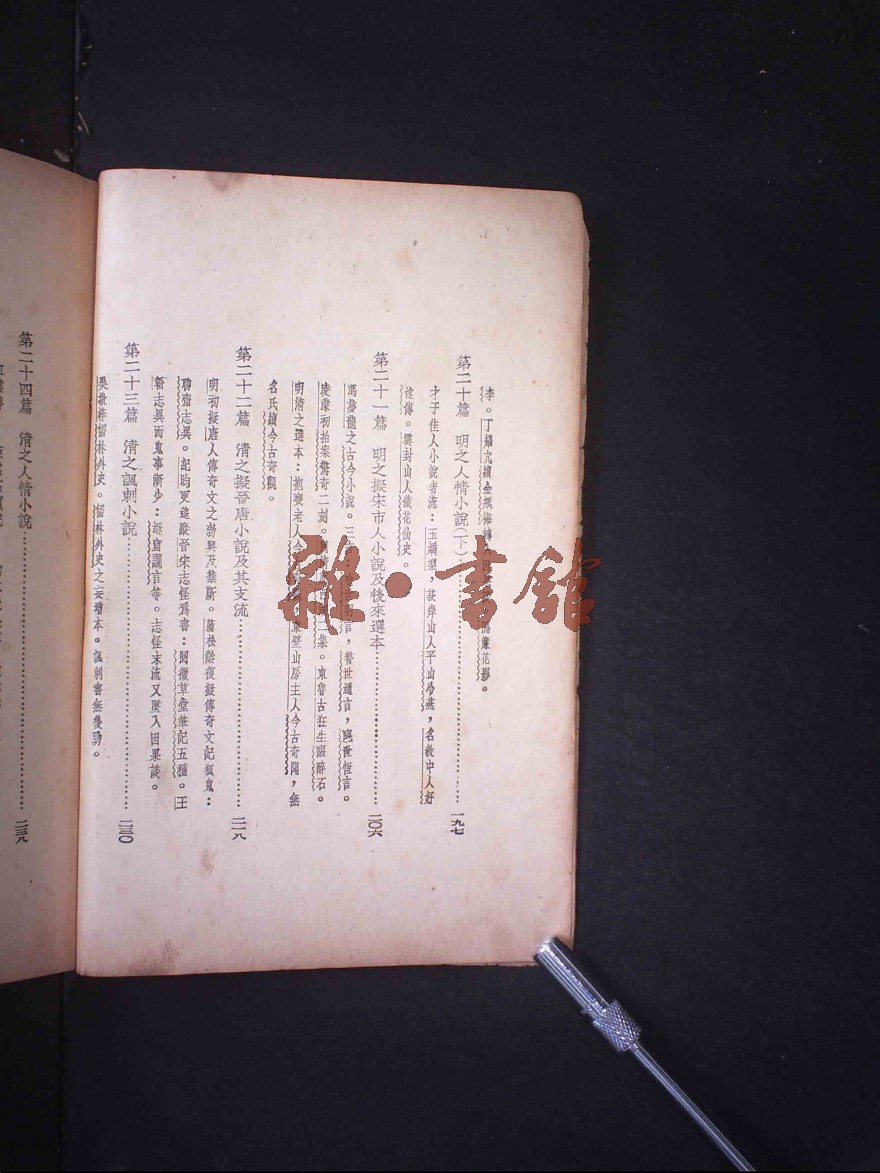 李。丁耀亢續金瓶梅轉花影。
第二十篇 明之人情小說(下)……一九七
才子佳人小說者流：玉嬌梨，荻岸山人平山冷燕，名教中人好
逑傳。雲封山人鐵花仙史。
第二十一篇 明之擬宋市人小說及後來選本……二〇六
馮夢龍之古今小說。三言，警世通言，醒世恆言。
凌濛初拍案驚奇二刻。二集。東魯古狂生醒醉石。
明清之選本：抱甕老人今古奇觀，東壁山房主人今古奇聞，無
名氏續今古奇觀。
第二十二篇 清之擬晉唐小說及其支流……二一八
明初擬唐人傳奇文之勃興及禁斷。蒲松齡復擬傳奇文記狐鬼：
聊齋志異。記昀更追蹤晉宋志怪爲書：閱微草堂筆記五種。王
韜志異而鬼事漸少：淞窗讕言等。志怪末流又墜入因果談。
第二十三篇 清之諷刺小說……二三〇
吳敬梓儒林外史。儒林外史之妄增本。諷刺書無後勁。
第二十四篇 清之人情小說……二三八
雜·書館